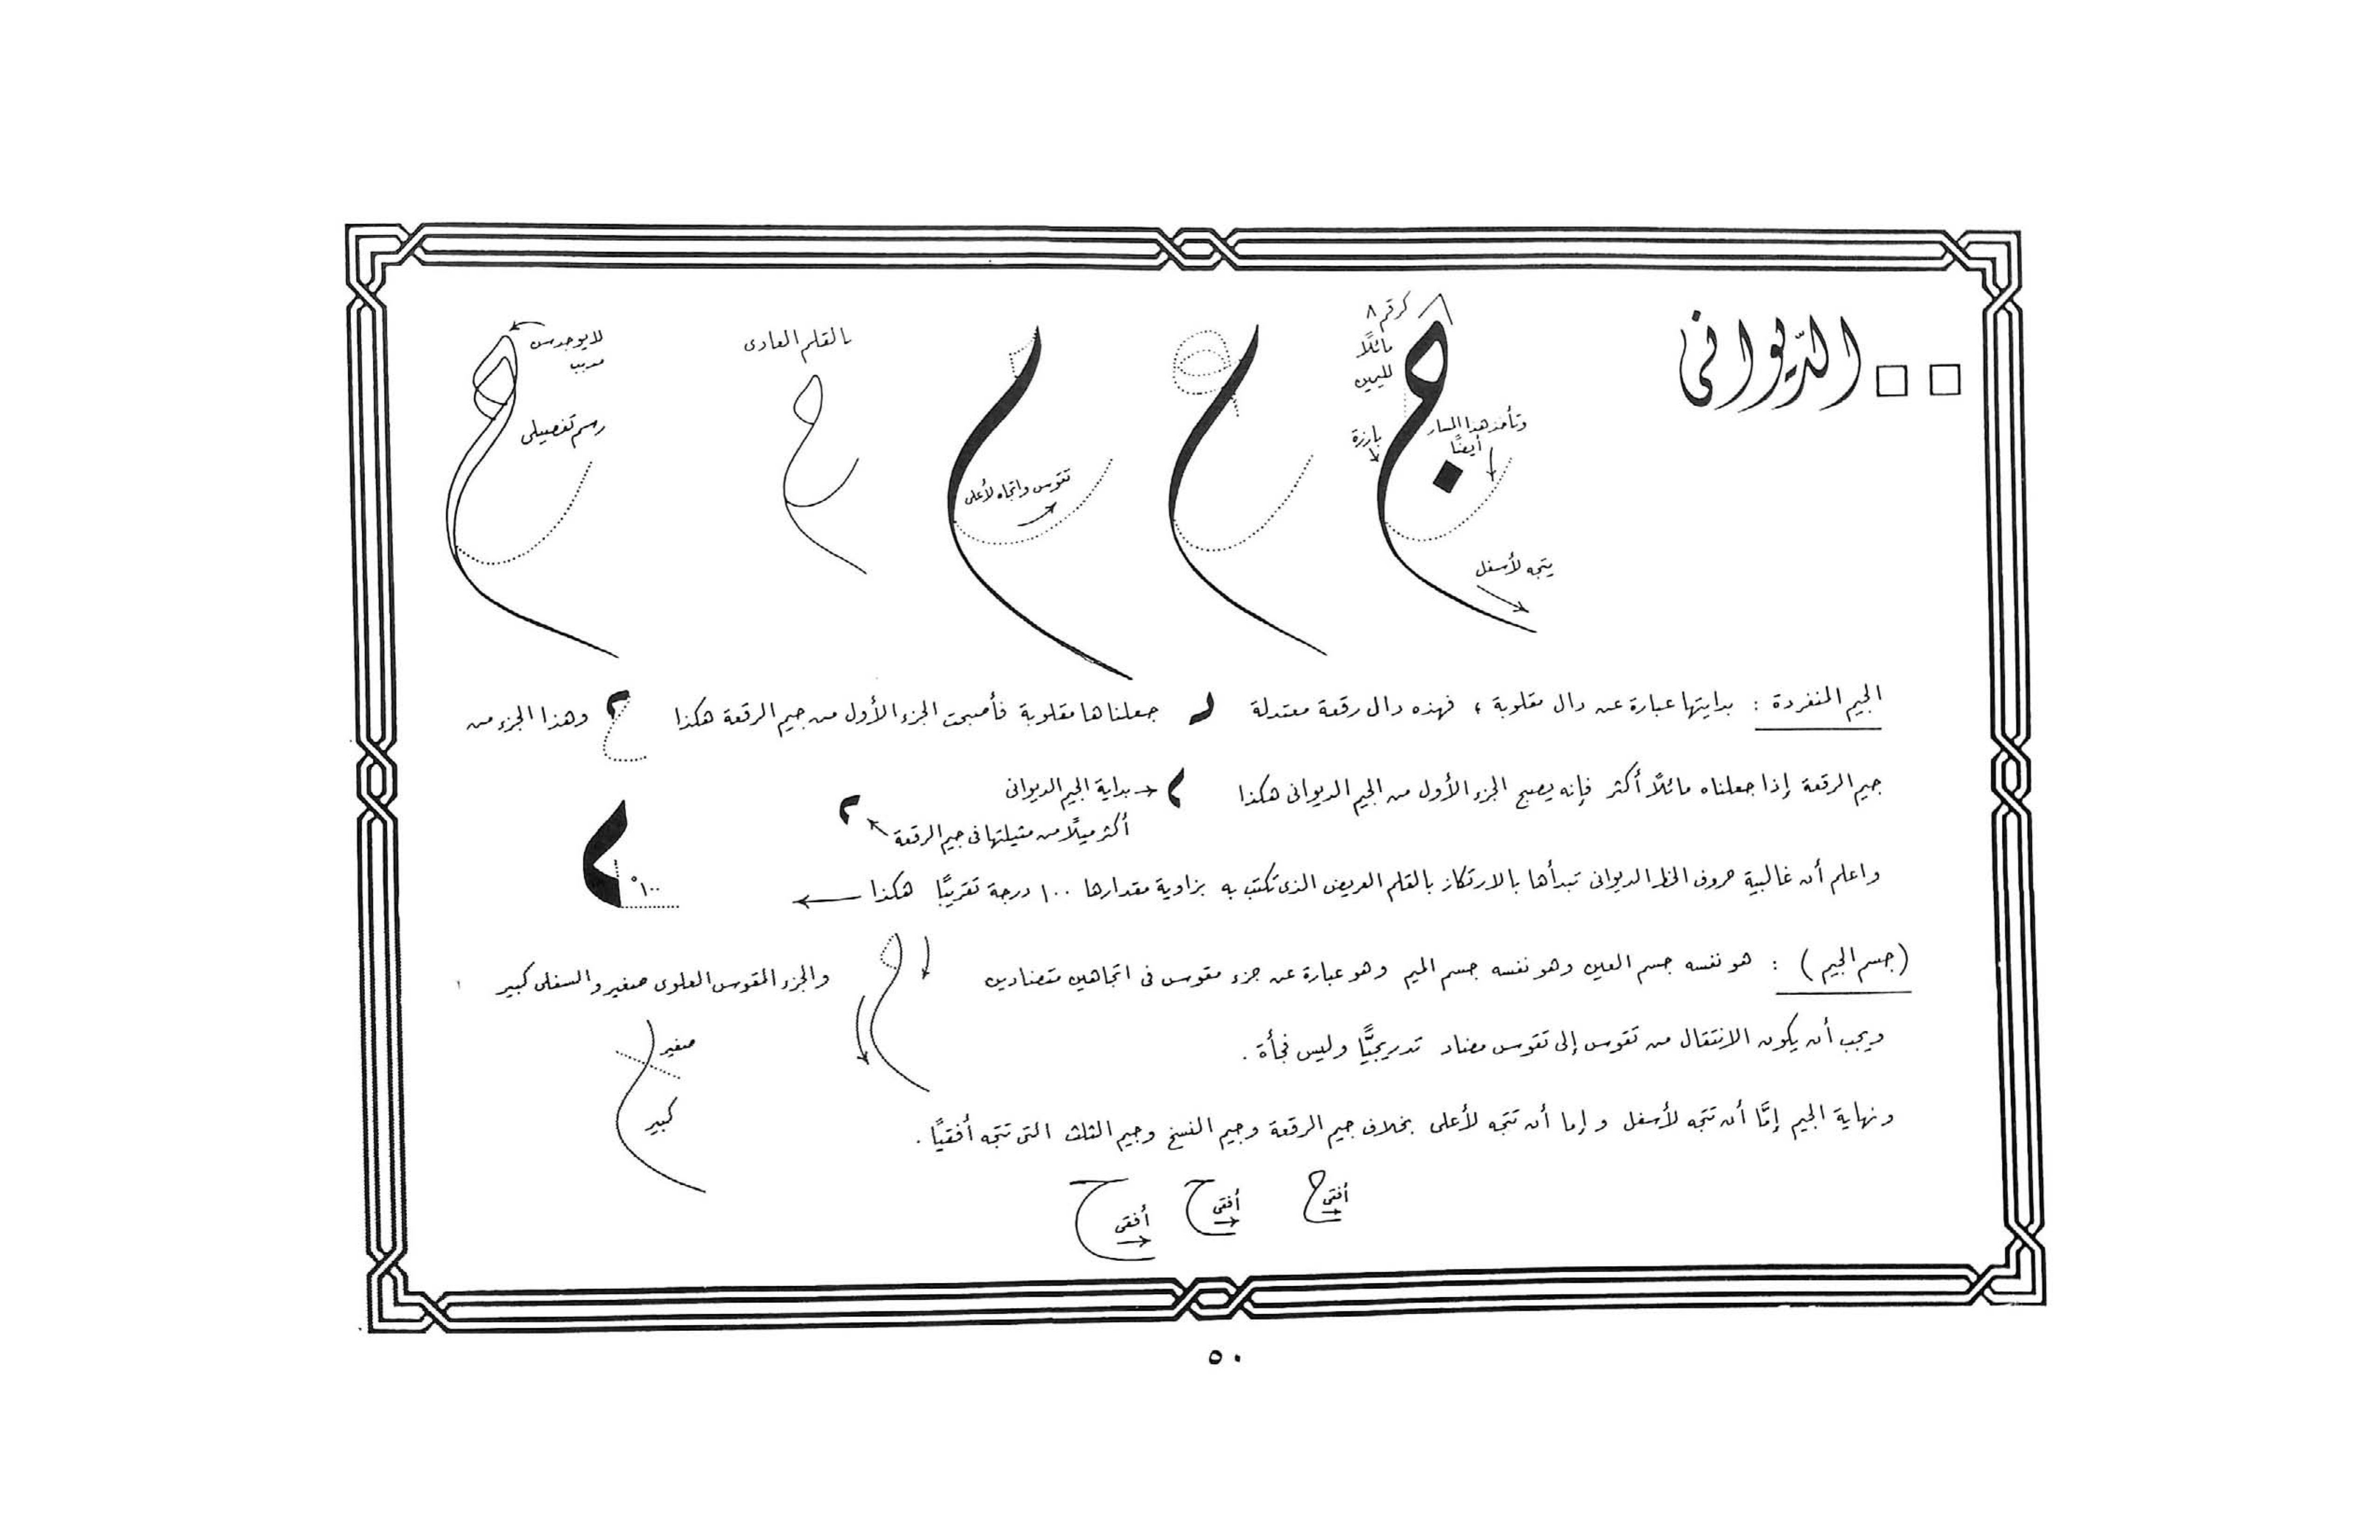 الدّيوانى
كرقم ٨
مائلًا
لليمين
وتأخذ هذا المسار
أيضًا
بارزة
يتجه لأسفل
تقوس واتجاه لأعلى
بالقلم العادى
لا يوجد سن
مدبب
رسم تفصيلى
الجيم المنفردة : بدايتها عبارة عن دال مقلوبة ، فهذه دال رقعة معتدلة جعلناها مقلوبة فأصبحت الجزء الأول من جيم الرقعة هكذا وهذا الجزء من
جيم الرقعة إذا جعلناه مائلًا أكثر فإنه يصبح الجزء الأول من الجيم الديوانى هكذا
بداية الجيم الديوانى
أكثر ميلًا من مثيلتها فى جيم الرقعة
واعلم أن غالبية حروف الخط الديوانى تبدأها بالارتكاز بالقلم العريض الذى تكتب به بزاوية مقدارها ١٠٠ درجة تقريبًا هكذا
١٠٠°
(جسم الجيم) : هو نفسه جسم العين وهو نفسه جسم الميم وهو عبارة عن جزء مقوس فى اتجاهين متضادين والجزء المقوس العلوى صغير والسفلى كبير
ويجب أن يكون الانتقال من تقوس إلى تقوس مضاد تدريجيًّا وليس فجأة .
صغير
كبير
ونهاية الجيم إمَّا أن تتجه لأسفل وإما أن تتجه لأعلى بخلاف جيم الرقعة وجيم النسخ وجيم الثلث التى تتجه أفقيًا .
أفقى
أفقى
أفقى
٥٠